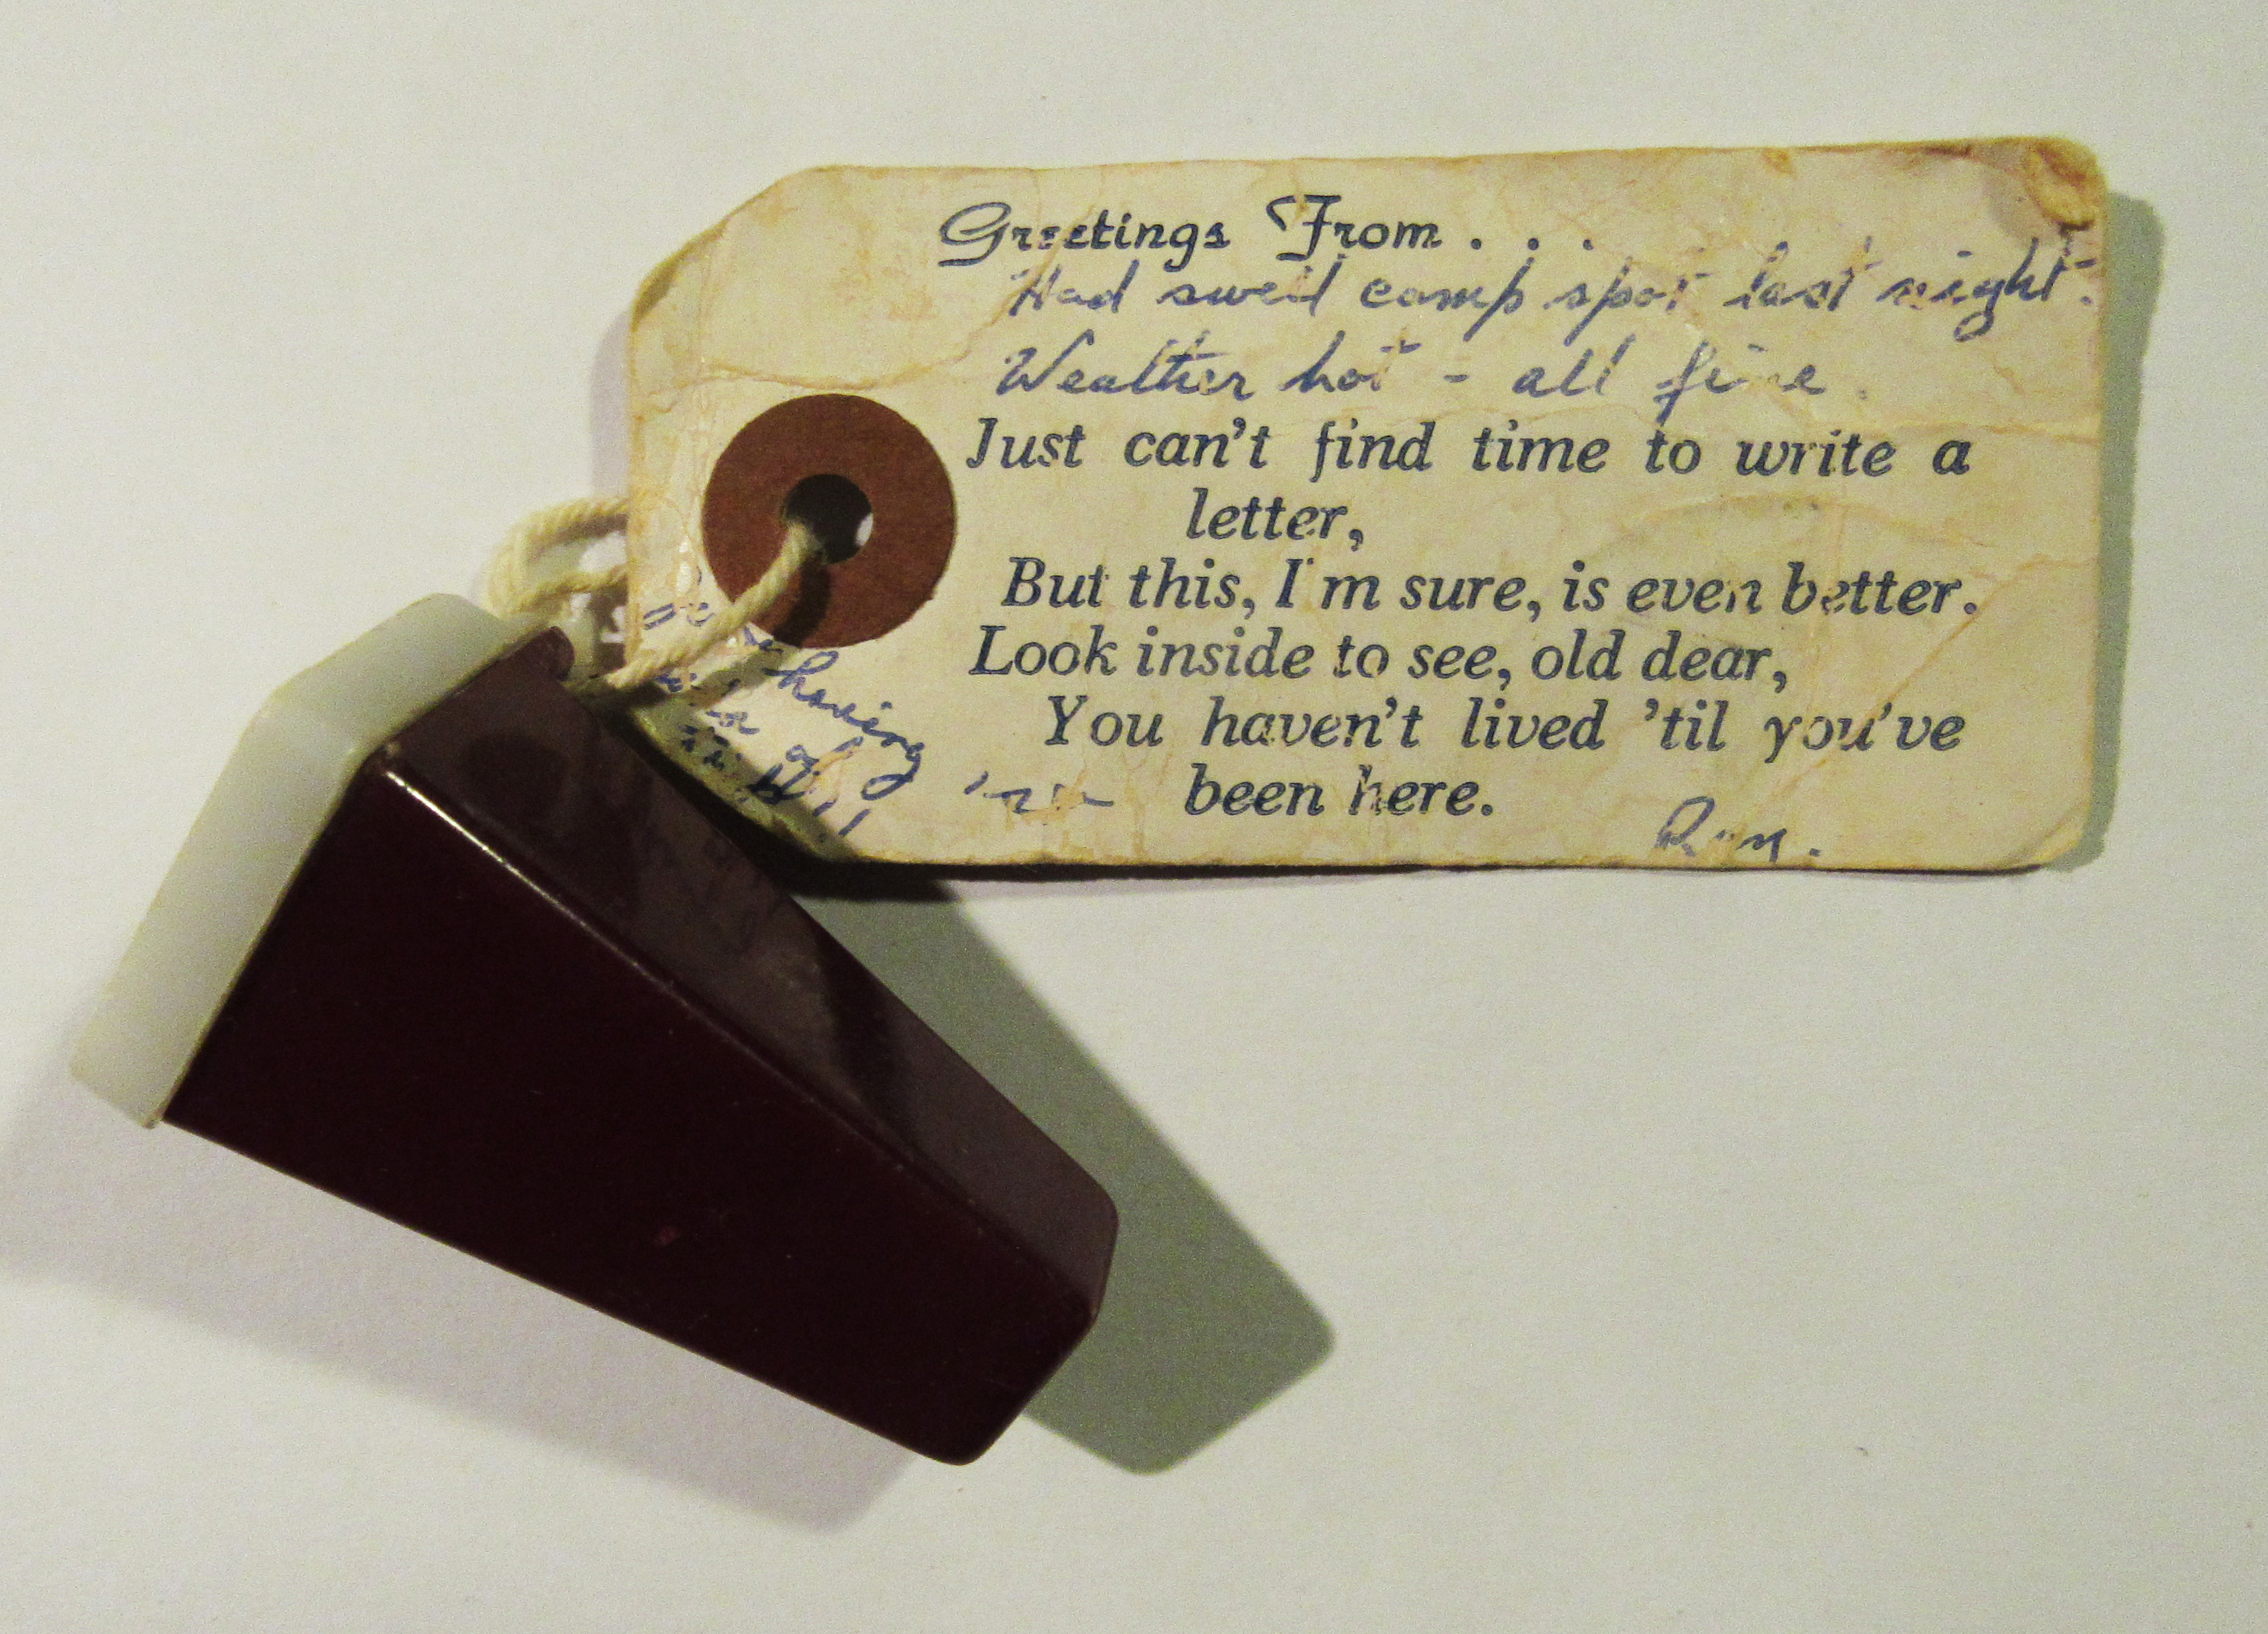 Greetings From . . .
Had swell camp spot last night.
Weather hot - all fine.
Just can't find time to write a
letter,
But this, I'm sure, is even better.
Look inside to see, old dear,
You haven't lived 'til you've
been here.
having
of